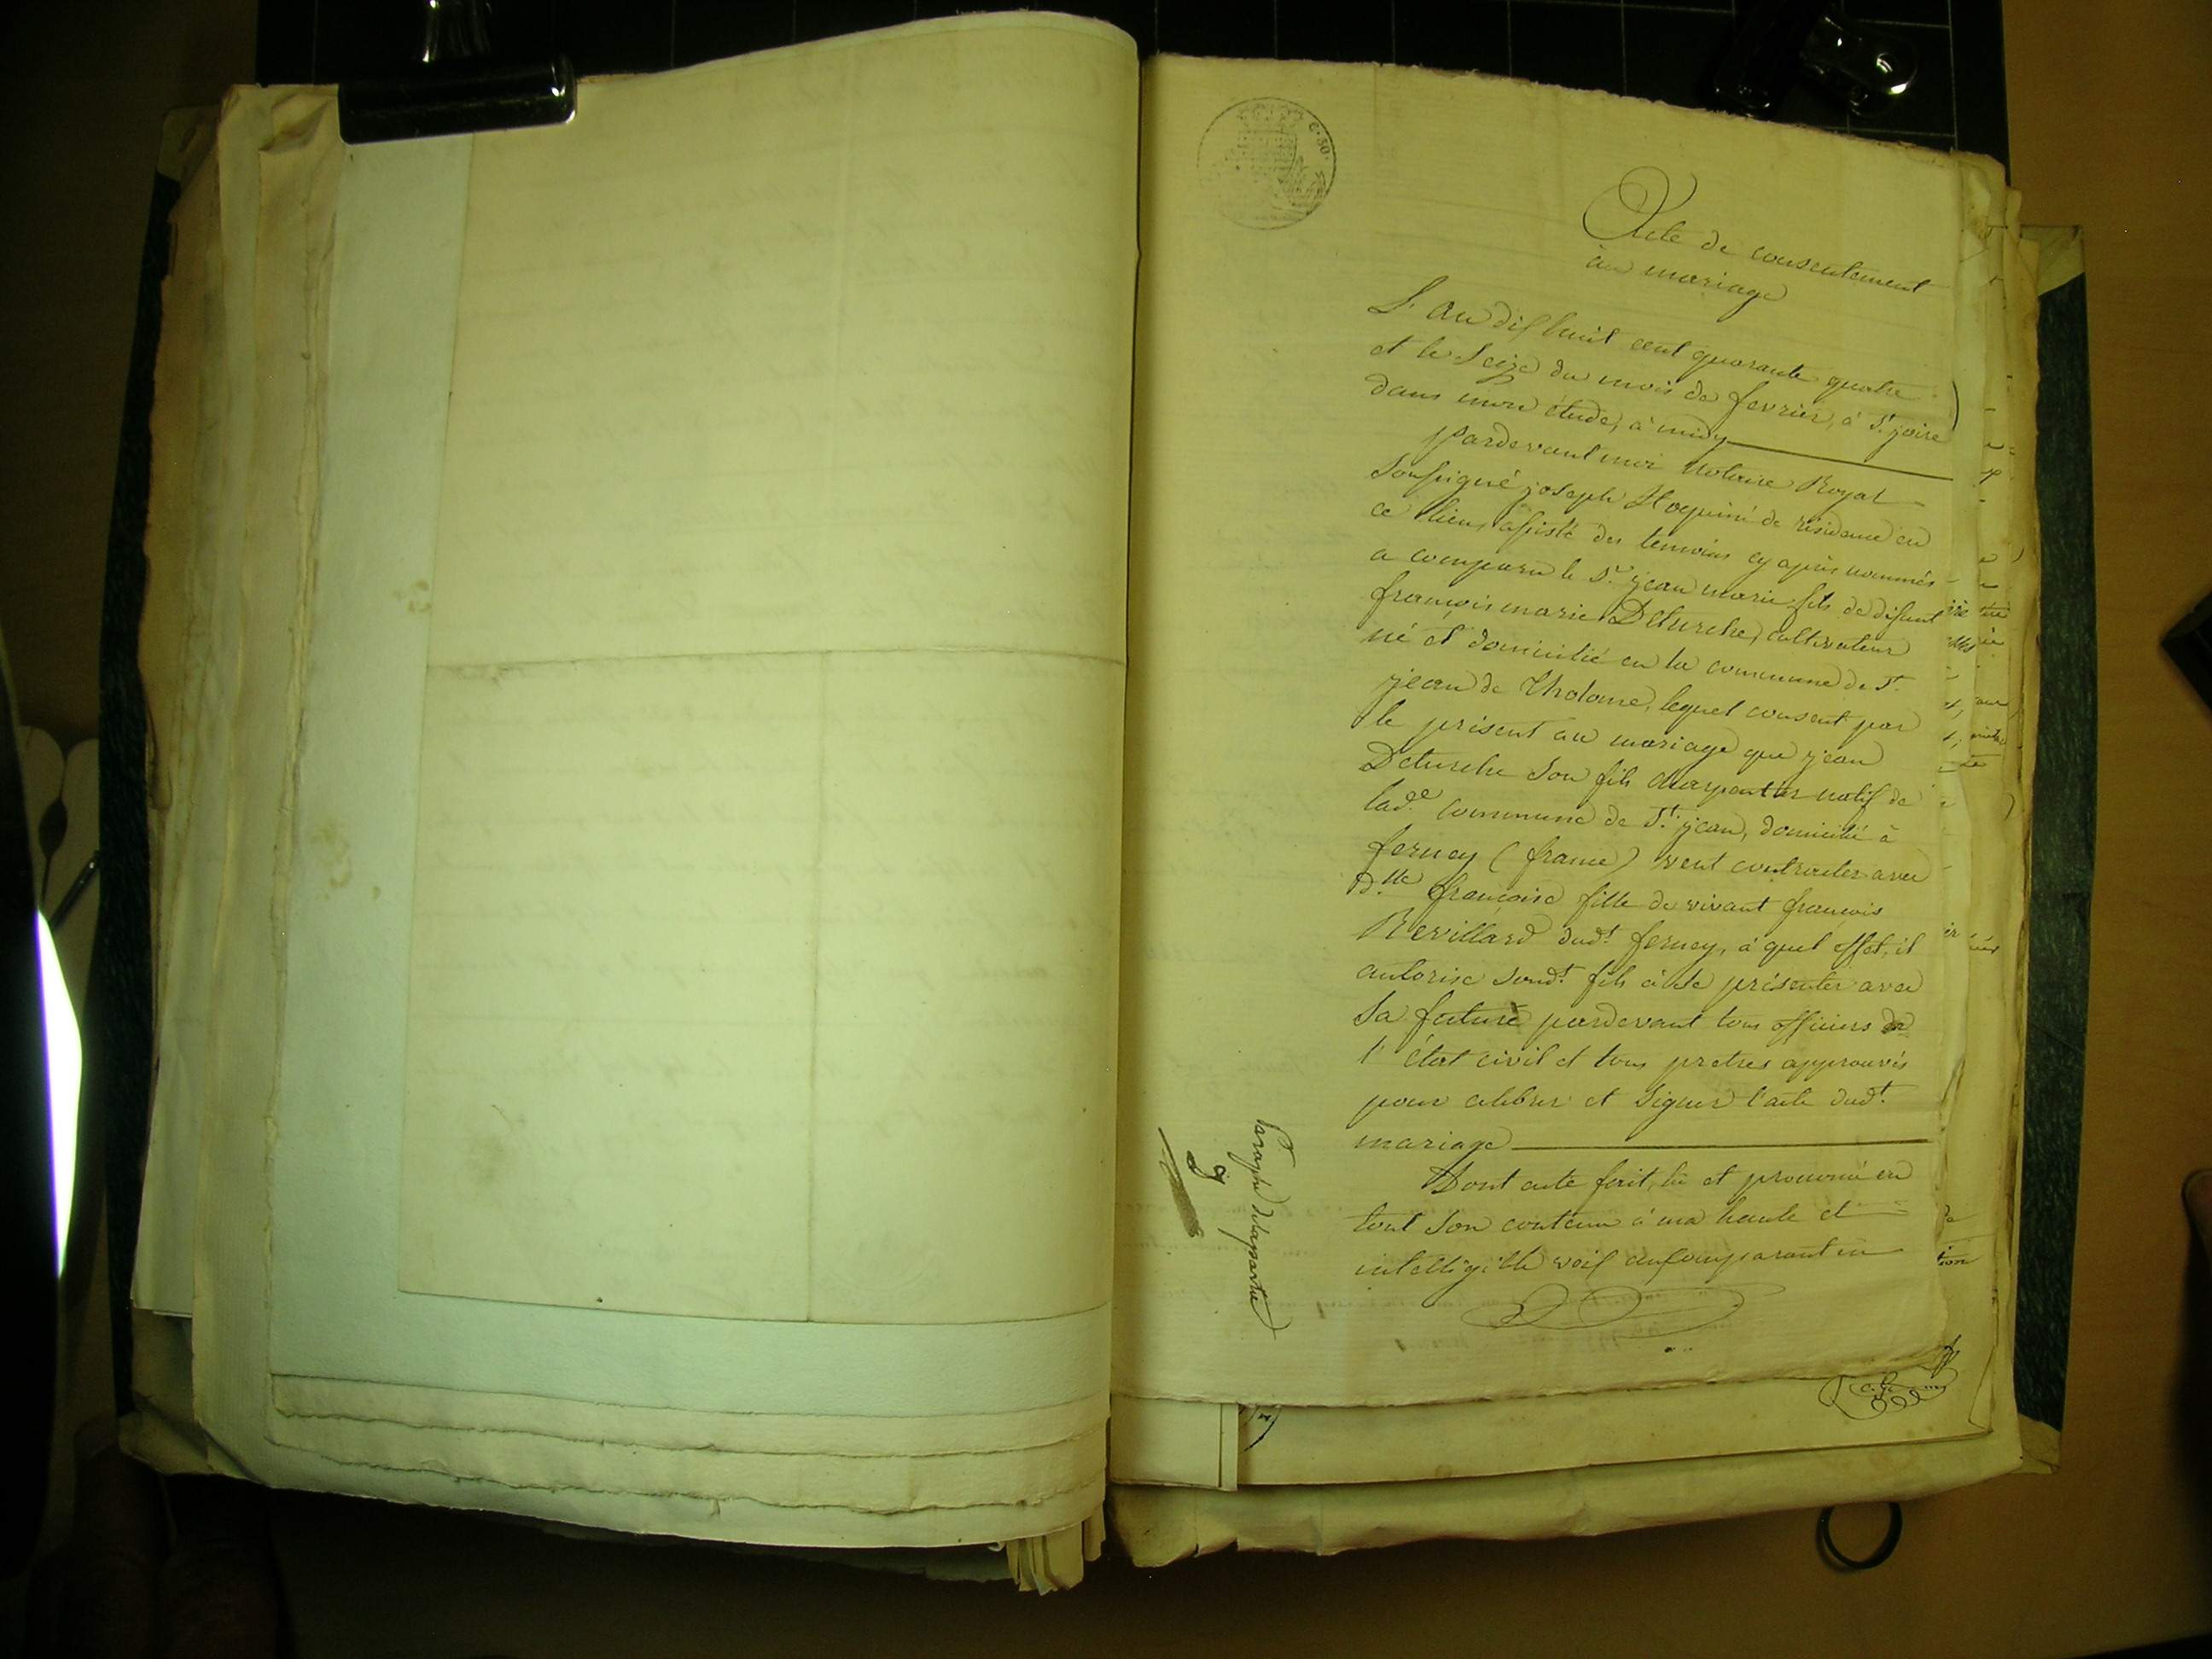 C. 50.
Acte de consentement
au mariage
L'an dix huit cent quarante quatre
et le seize du mois de fevrier, à St. joire
dans mon étude, à midy
Pardevant moi Notaire Royal
soussigné joseph de résidence en
ce lieu, assisté des temoins cy après nommés
a comparu le Sr. jean marie fils de défunt
françois marie Deturche, cultivateur
né et domicilié en la commune de St.
jean de Tholome, lequel consent par
le présent au mariage que jean
Deturche son fils charpentier natif de
lade. commune de St. jean, domicilié à
ferney (france) veut contracter avec
Dlle. françoise fille de vivant françois
Revillard dudt. ferney, à quel effet, il
autorise sondt. fils à se présenter avec
sa future pardevant tous officiers de
l'état civil et tous pretres approuvés
pour celebrer et signer l'acte dudt.
mariage
Dont acte fait, lu et prononcé en
tout son contenu à ma haute et
intelligible voix au comparant en
Paraphe de la partie